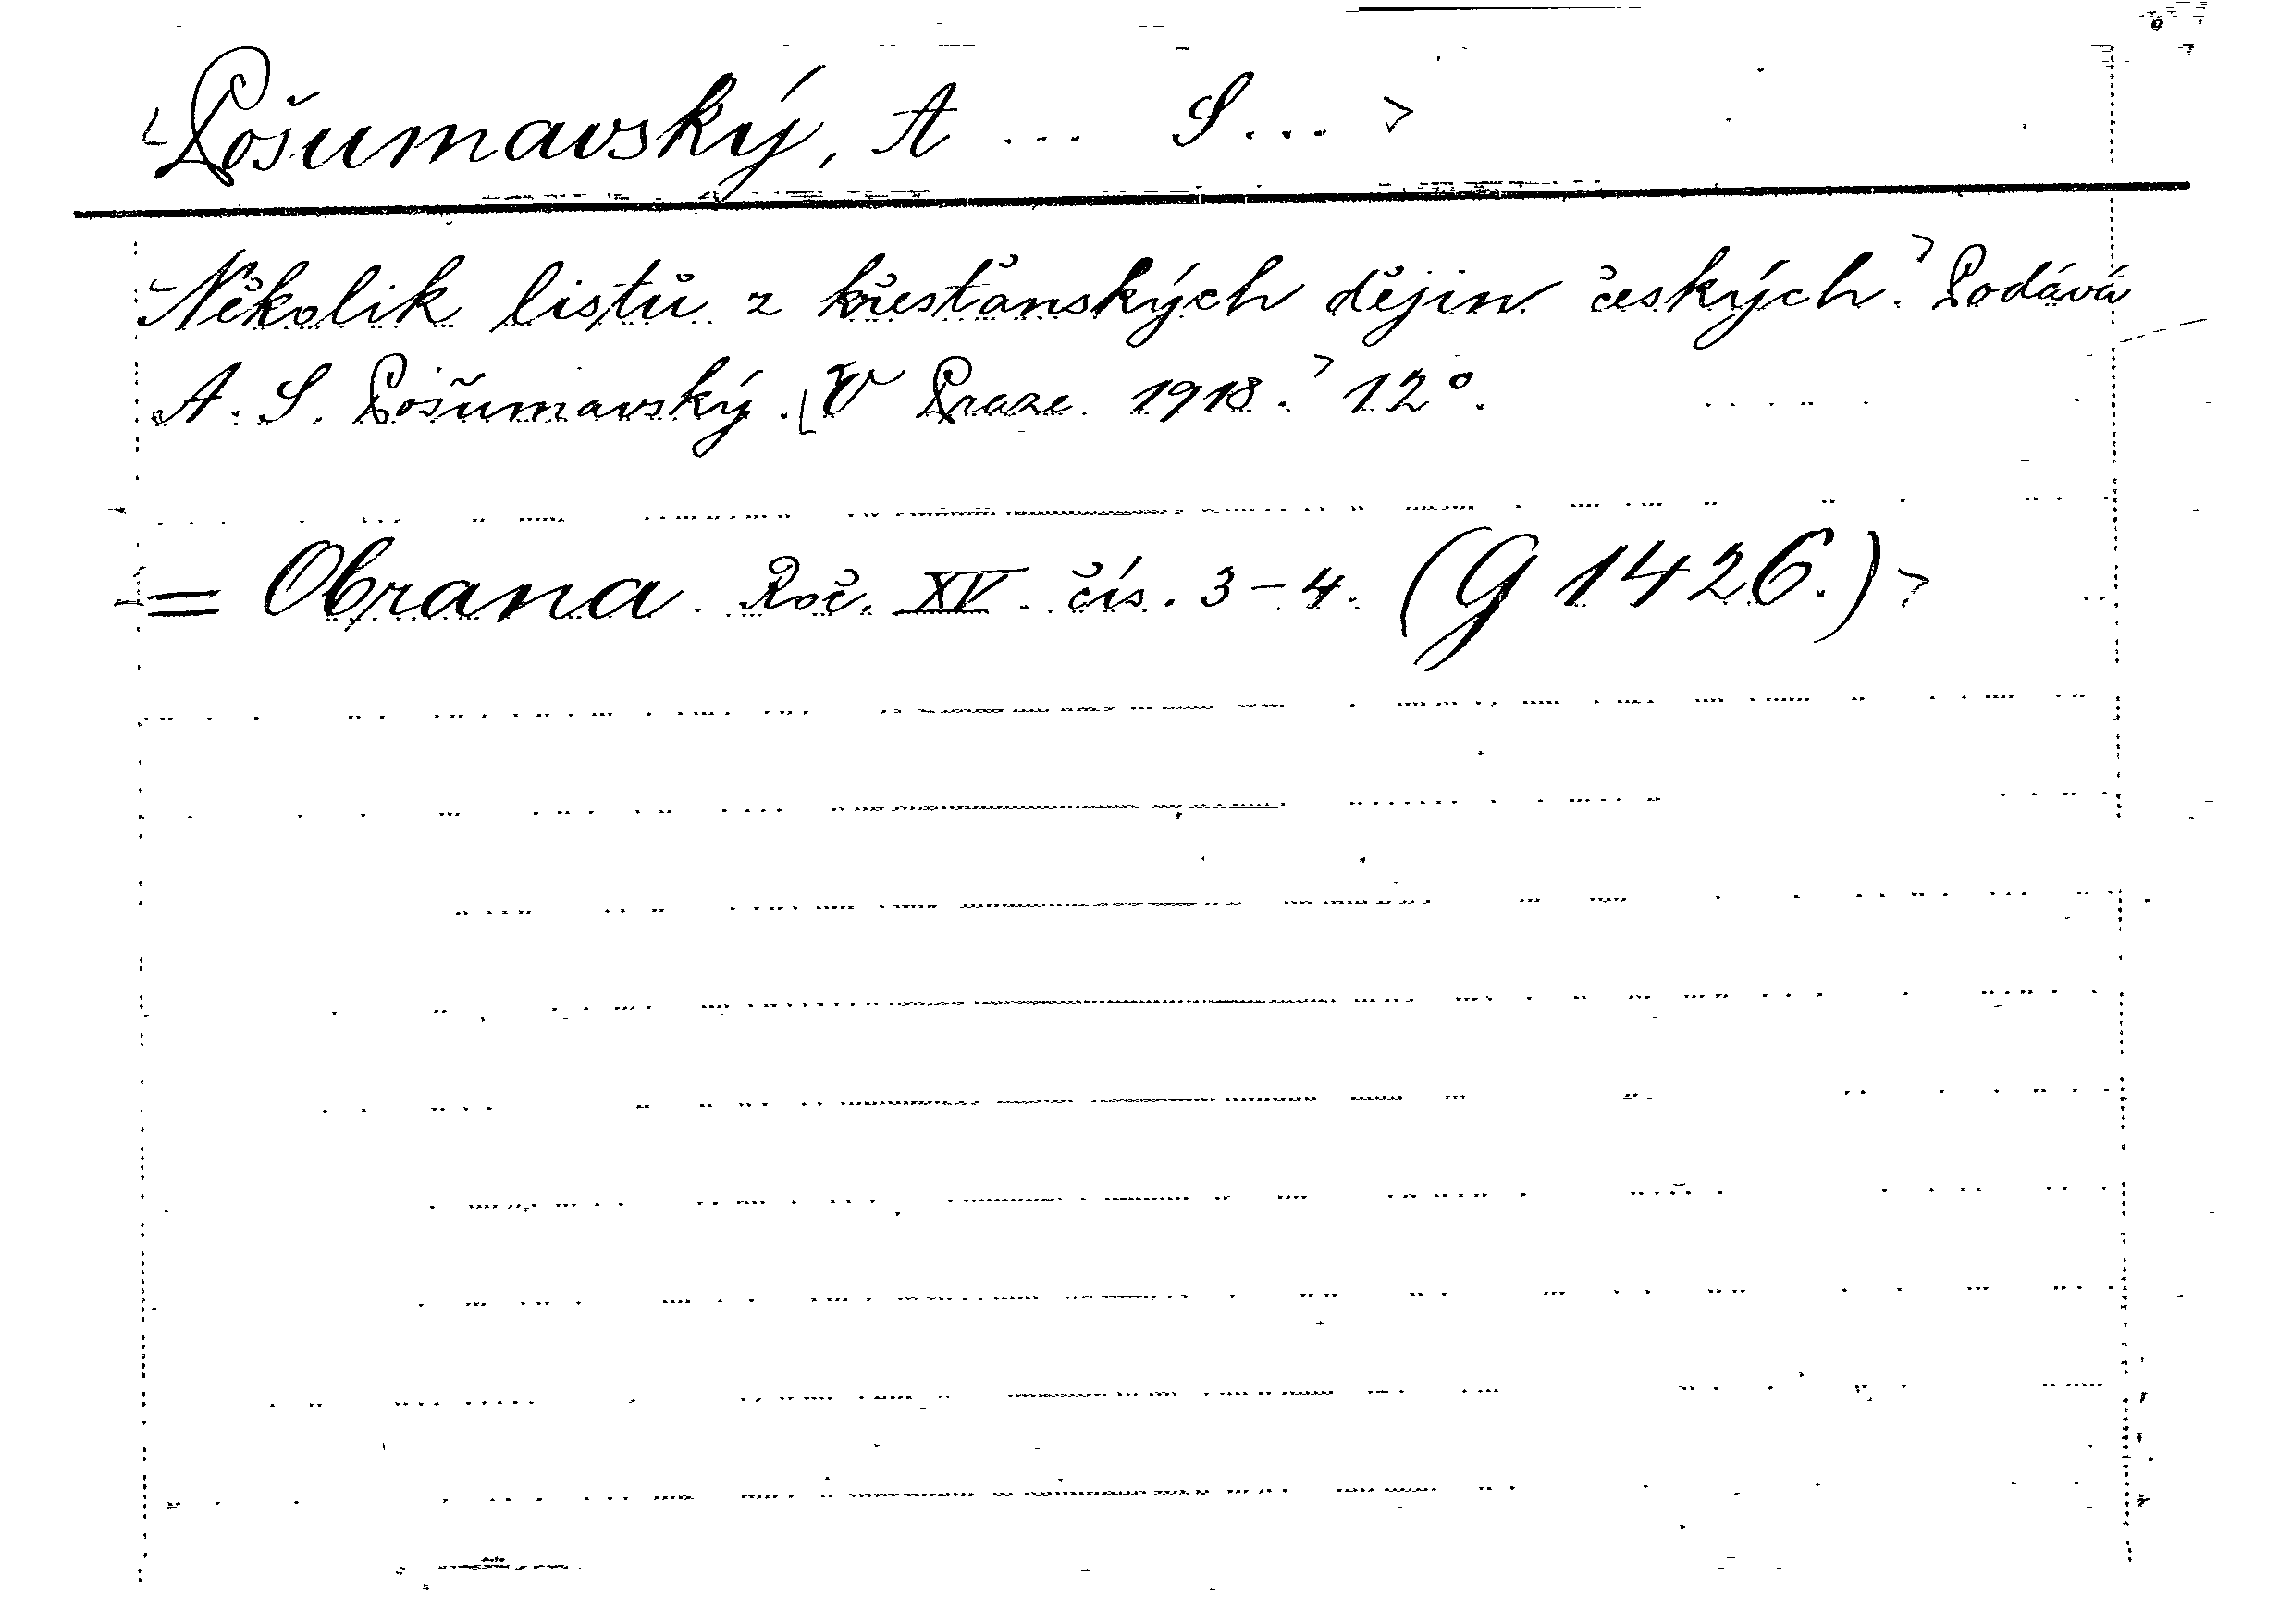 Pošumavský, A ... S...
Několik listů z křesťanských dějin českých. Podává
A. S. Pošumavský. V Praze. 1918. 12°.
= Obrana. Roč. XV. čís. 3-4. (G 1426.)